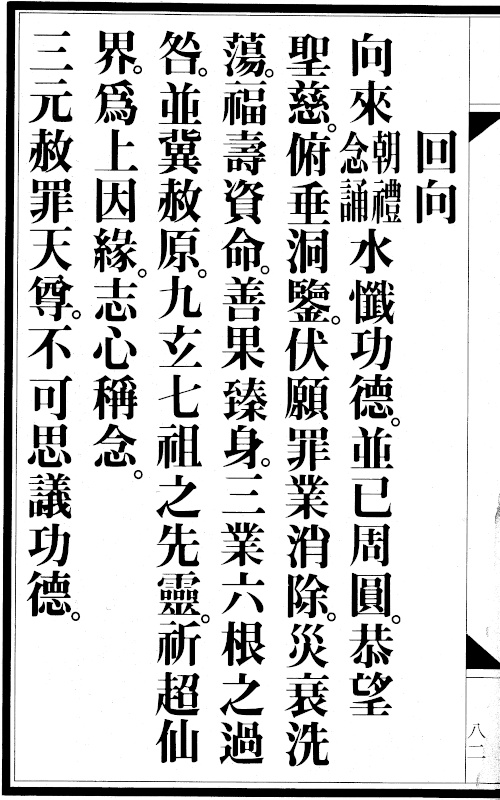 回向
向來朝禮念誦水懺功德。並已周圓。恭望
聖慈。俯垂洞鑒。伏願罪業消除。災衰洗
蕩。福壽資命。善果臻身。三業六根之過
咎。並冀赦原。九玄七祖之先靈。祈超仙
界。爲上因緣。志心稱念。
三元赦罪天尊。不可思議功德。
八二